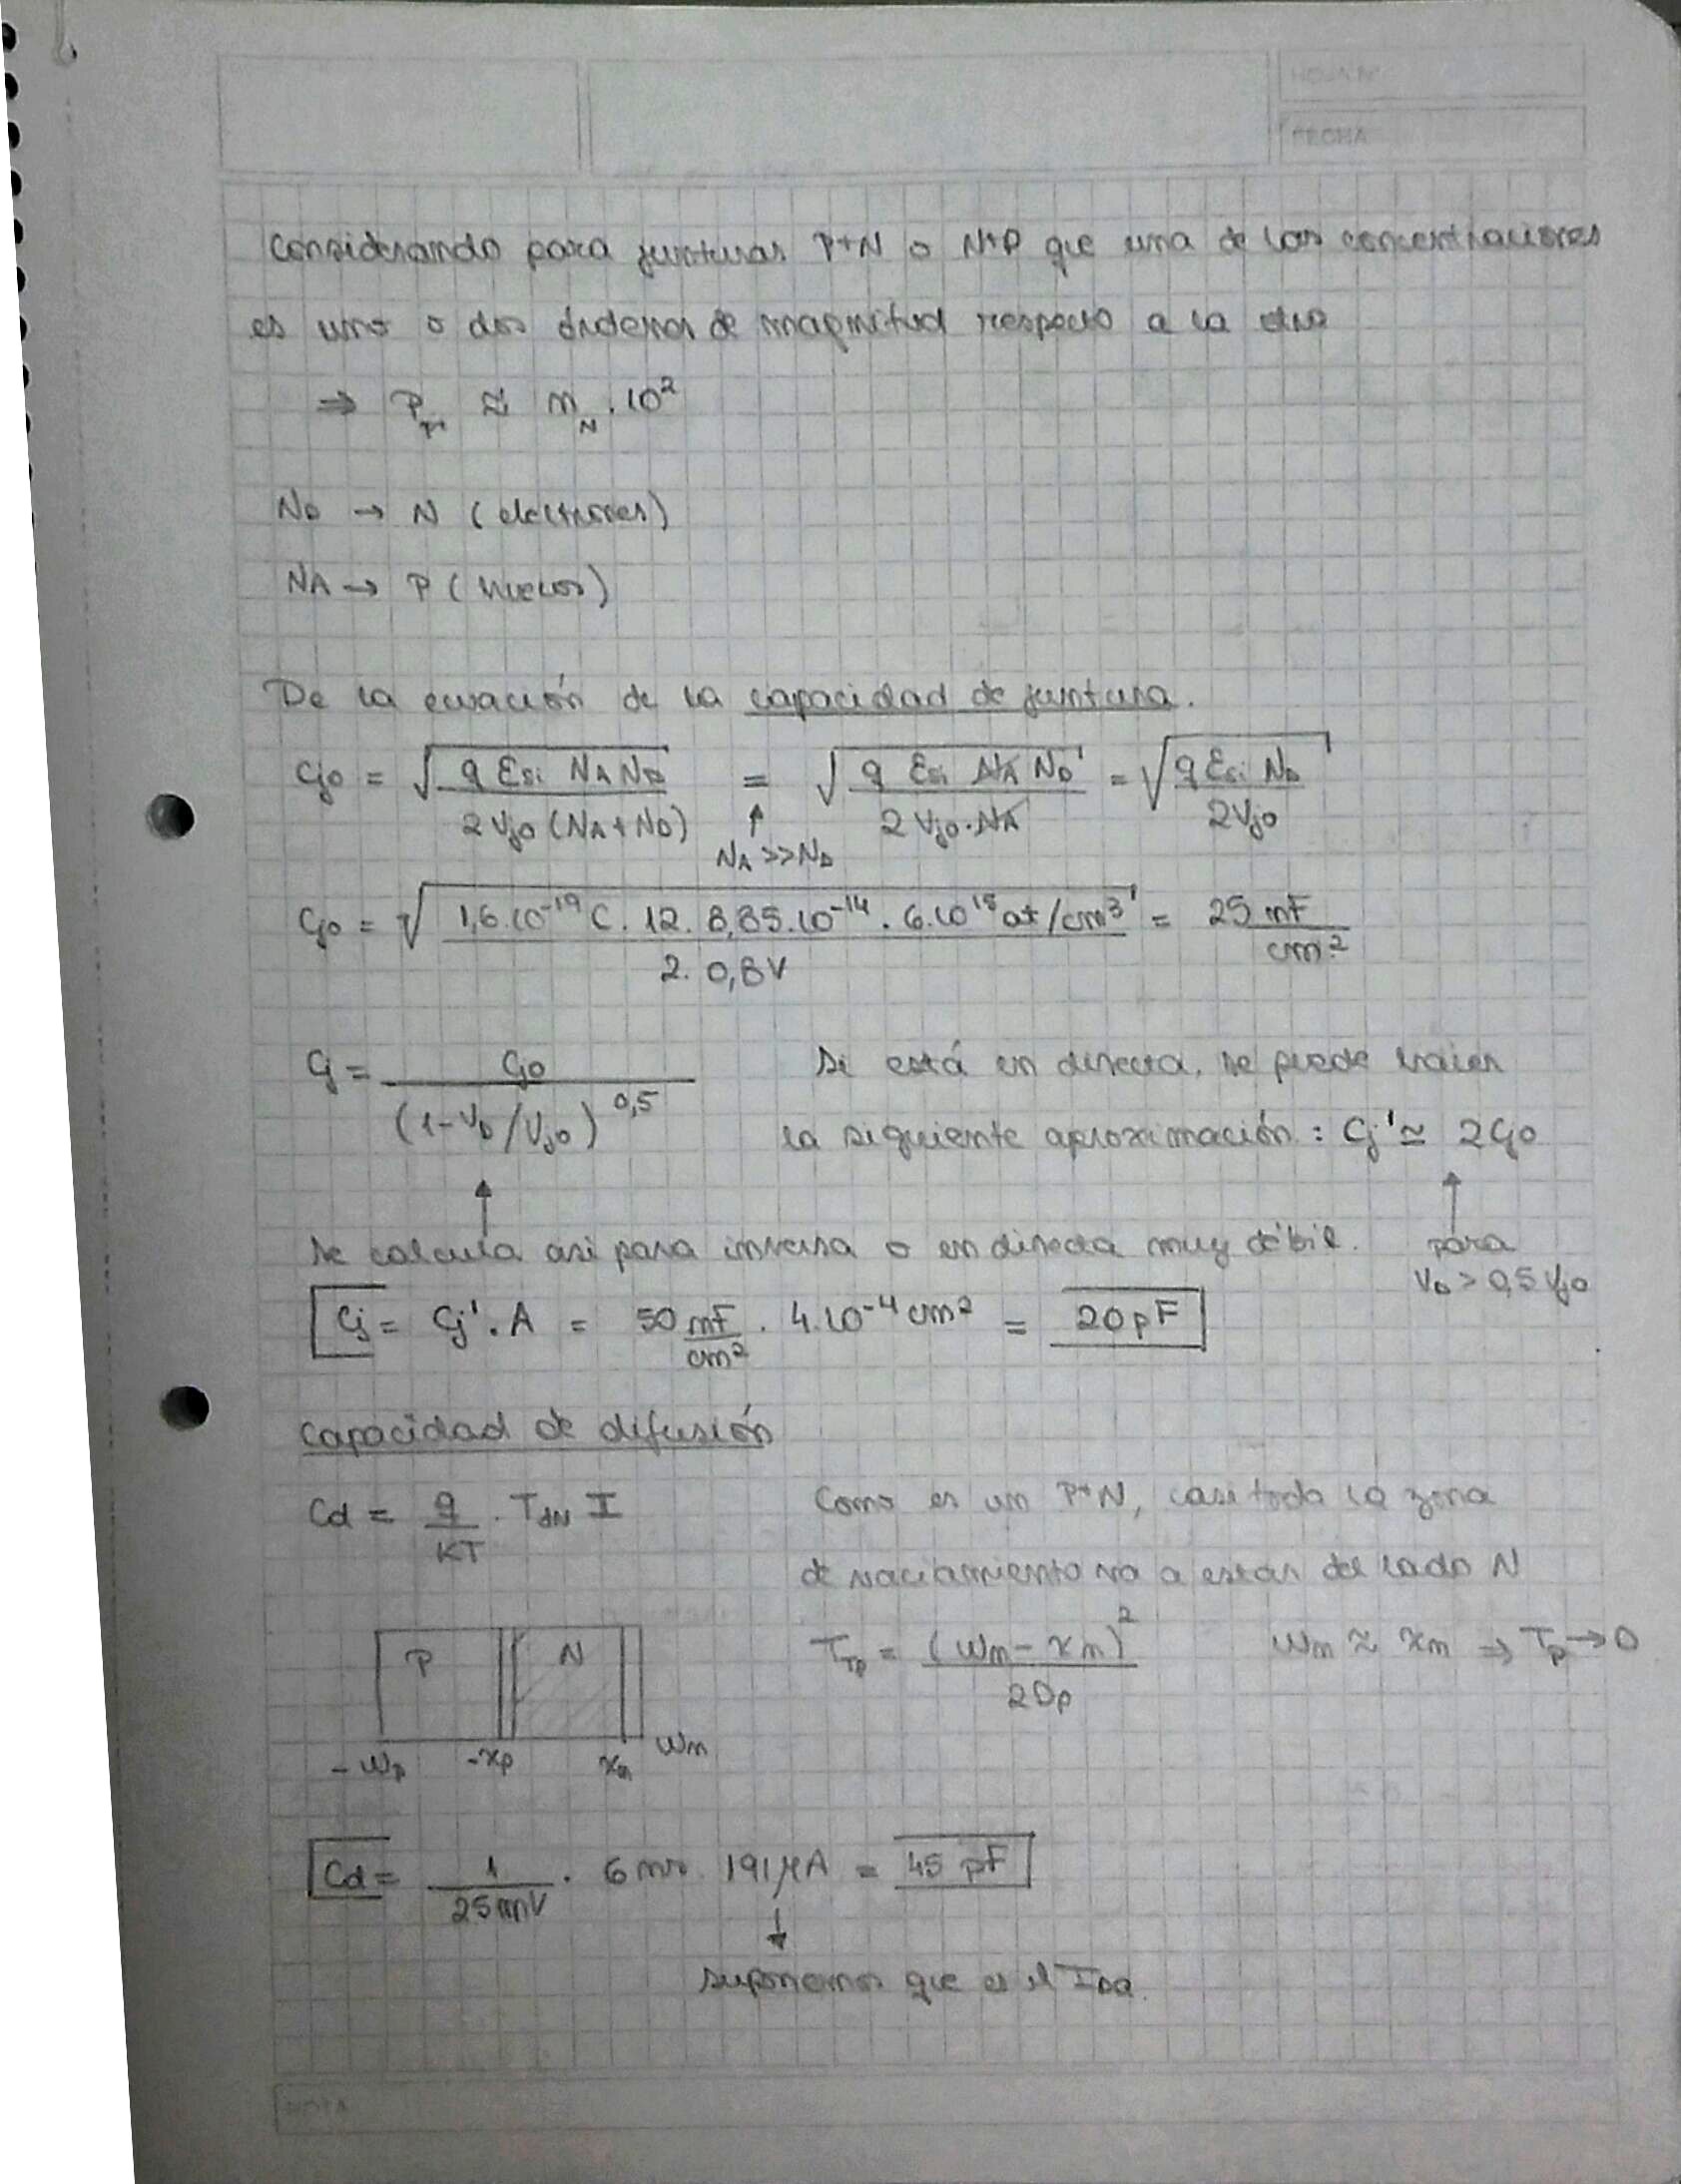 HOJA Nº
FECHA
Considerando para junturas P+N o N+P que una de las concentraciones
es uno o dos órdenes de magnitud respecto a la otra
⇒ P_P+ ≈ n_N . 10²
N_D → N (electrones)
N_A → P (huecos)
De la ecuación de la capacidad de juntura.
Cjo = √(q Esi N_A N_D / 2 Vjo (N_A + N_D)) = √(q Esi N_A N_D / 2 Vjo . N_A) = √(q Esi N_D / 2Vjo)
N_A >> N_D
Cjo = √(1,6.10⁻¹⁹ C . 12 . 8,85.10⁻¹⁴ . 6.10¹⁵ at/cm³ / 2. 0,8V) = 25 nF/cm²
Cj = Cjo / (1 - V_D/Vjo)^0,5 Si está en directa, se puede hacer
la siguiente aproximación : Cj' ≃ 2Cjo
Se calcula así para inversa o en directa muy débil. para
V_D > 0,5 Vjo
Cj = Cj' . A = 50 nF/cm² . 4.10⁻⁴ cm² = 20 pF
Capacidad de difusión
Cd = q/KT . T_dN I Como es un P+N, casi toda la zona
de vaciamiento va a estar del lado N
P N T_Tp = (Wn - xn)² / 2Dp Wn ≈ xn ⇒ T_p → 0
-Wp -xp xn Wn
Cd = 1/25mV . 6 ns . 191 μA = 45 pF
suponemos que es el I_DQ.
NOTA